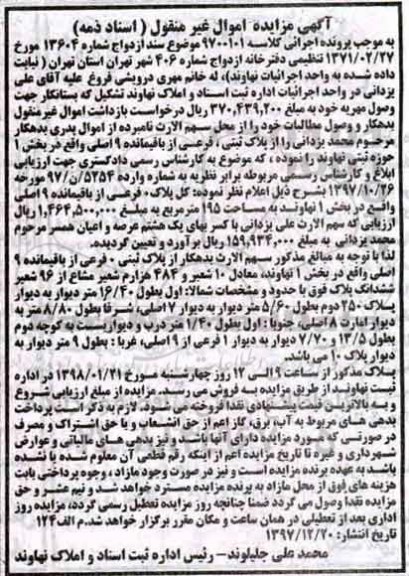 آگهی مزایده اموال غیر منقول ( اسناد ذمه)
به موجب پرونده اجرائی کلاسه ۹۷۰۰۱۰۱ موضوع سند ازدواج شماره ۱۳۶۰۴ مورخ
۱۳۷۱/۰۲/۲۷ تنظیمی دفترخانه ازدواج شماره ۴۰۶ شهر تهران استان تهران ( نیابت
داده شده به واحد اجرائیات نهاوند)، له خانم مهری درویشی فروغ علیه آقای علی
یزدانی در واحد اجرائیات اداره ثبت اسناد و املاک نهاوند تشکیل که بستانکار جهت
وصول مهریه خود به مبلغ ۳۷۰,۴۳۹,۲۰۰ ریال درخواست بازداشت اموال غیرمنقول
بدهکار و وصول مطالبات خود را از محل سهم الارث نامبرده از اموال پدری بدهکار
مرحوم محمد یزدانی را از پلاک ثبتی ، فرعی از باقیمانده ۹ اصلی واقع در بخش ۱
حوزه ثبتی نهاوند را نموده ، که موضوع به کارشناس رسمی دادگستری جهت ارزیابی
ابلاغ و کارشناس رسمی مربوطه برابر نظریه به شماره وارده ۵۲۵۴/ن/۹۷ مورخه
۱۳۹۷/۱۰/۲۶ بشرح ذیل اعلام نظر نموده: کل پلاک۰ فرعی از باقیمانده ۹ اصلی
واقع در بخش ۱ نهاوند به مساحت ۱۹۵ مترمربع به مبلغ ۱,۴۶۴,۵۰۰,۰۰۰ ریال
ارزیابی که سهم الارث علی یزدانی با کسر بهای یک هشتم عرصه و اعیان همسر مرحوم
محمد یزدانی به مبلغ ۱۵۹,۹۳۴,۰۰۰ ریال برآورد و تعیین گردیده.
لذا با توجه به مبالغ مذکور سهم الارث بدهکار از پلاک ثبتی ۰ فرعی از باقیمانده ۹
اصلی واقع در بخش ۱ نهاوند، معادل ۱۰ شعیر و ۴۸۴ هزارم شعیر مشاع از ۹۶ شعیر
ششدانگ پلاک فوق با حدود و مشخصات شمالا: اول بطول ۱۶/۴۰ متر دیوار به دیوار
پلاک ۲۵۰ دوم بطول ۵/۶۰ متر دیوار به دیوار ۷ اصلی، شرقا بطول ۸/۸۰ متر به
دیوار عمارت ۸ اصلی، جنوبا : اول بطول ۱/۴۰ متر درب و دیواریست به کوچه دوم
بطول ۱۳/۵ و ۷/۷۰ دیوار به دیوار ۱ فرعی از ۹ اصلی، غربا : بطول ۹ متر دیوار به
دیوار پلاک ۱۰ می باشد.
پلاک مذکور از ساعت ۹ الی ۱۲ روز چهارشنبه مورخ ۱۳۹۸/۰۱/۲۱ در اداره
ثبت نهاوند از طریق مزایده به فروش می رسد. مزایده از مبلغ ارزیابی شروع
و به بالاترین قیمت پیشنهادی نقدا فروخته می شود. لازم به ذکر است پرداخت
بدهی های مربوط به آب، برق، گاز اعم از حق انشعاب و یا حق اشتراک و مصرف
در صورتی که مورد مزایده دارای آنها باشد و نیز بدهی های مالیاتی و عوارض
شهرداری و غیره تا تاریخ مزایده اعم از اینکه رقم قطعی آن معلوم شده یا نشده
باشد به عهده برنده مزایده است و نیز در صورت وجود مازاد ، وجوه پرداختی بابت
هزینه های فوق از محل مازاد به برنده مزایده مسترد خواهد شد و نیم عشر و حق
مزایده نقدا وصول می گردد ضمنا چنانچه روز مزایده تعطیل رسمی گردد، مزایده روز
اداری بعد از تعطیلی در همان ساعت و مکان مقرر برگزار خواهد شد.م الف۱۲۴
تاریخ انتشار: ۱۳۹۷/۱۲/۲۰
محمد علی جلیلوند – رئیس اداره ثبت اسناد و املاک نهاوند